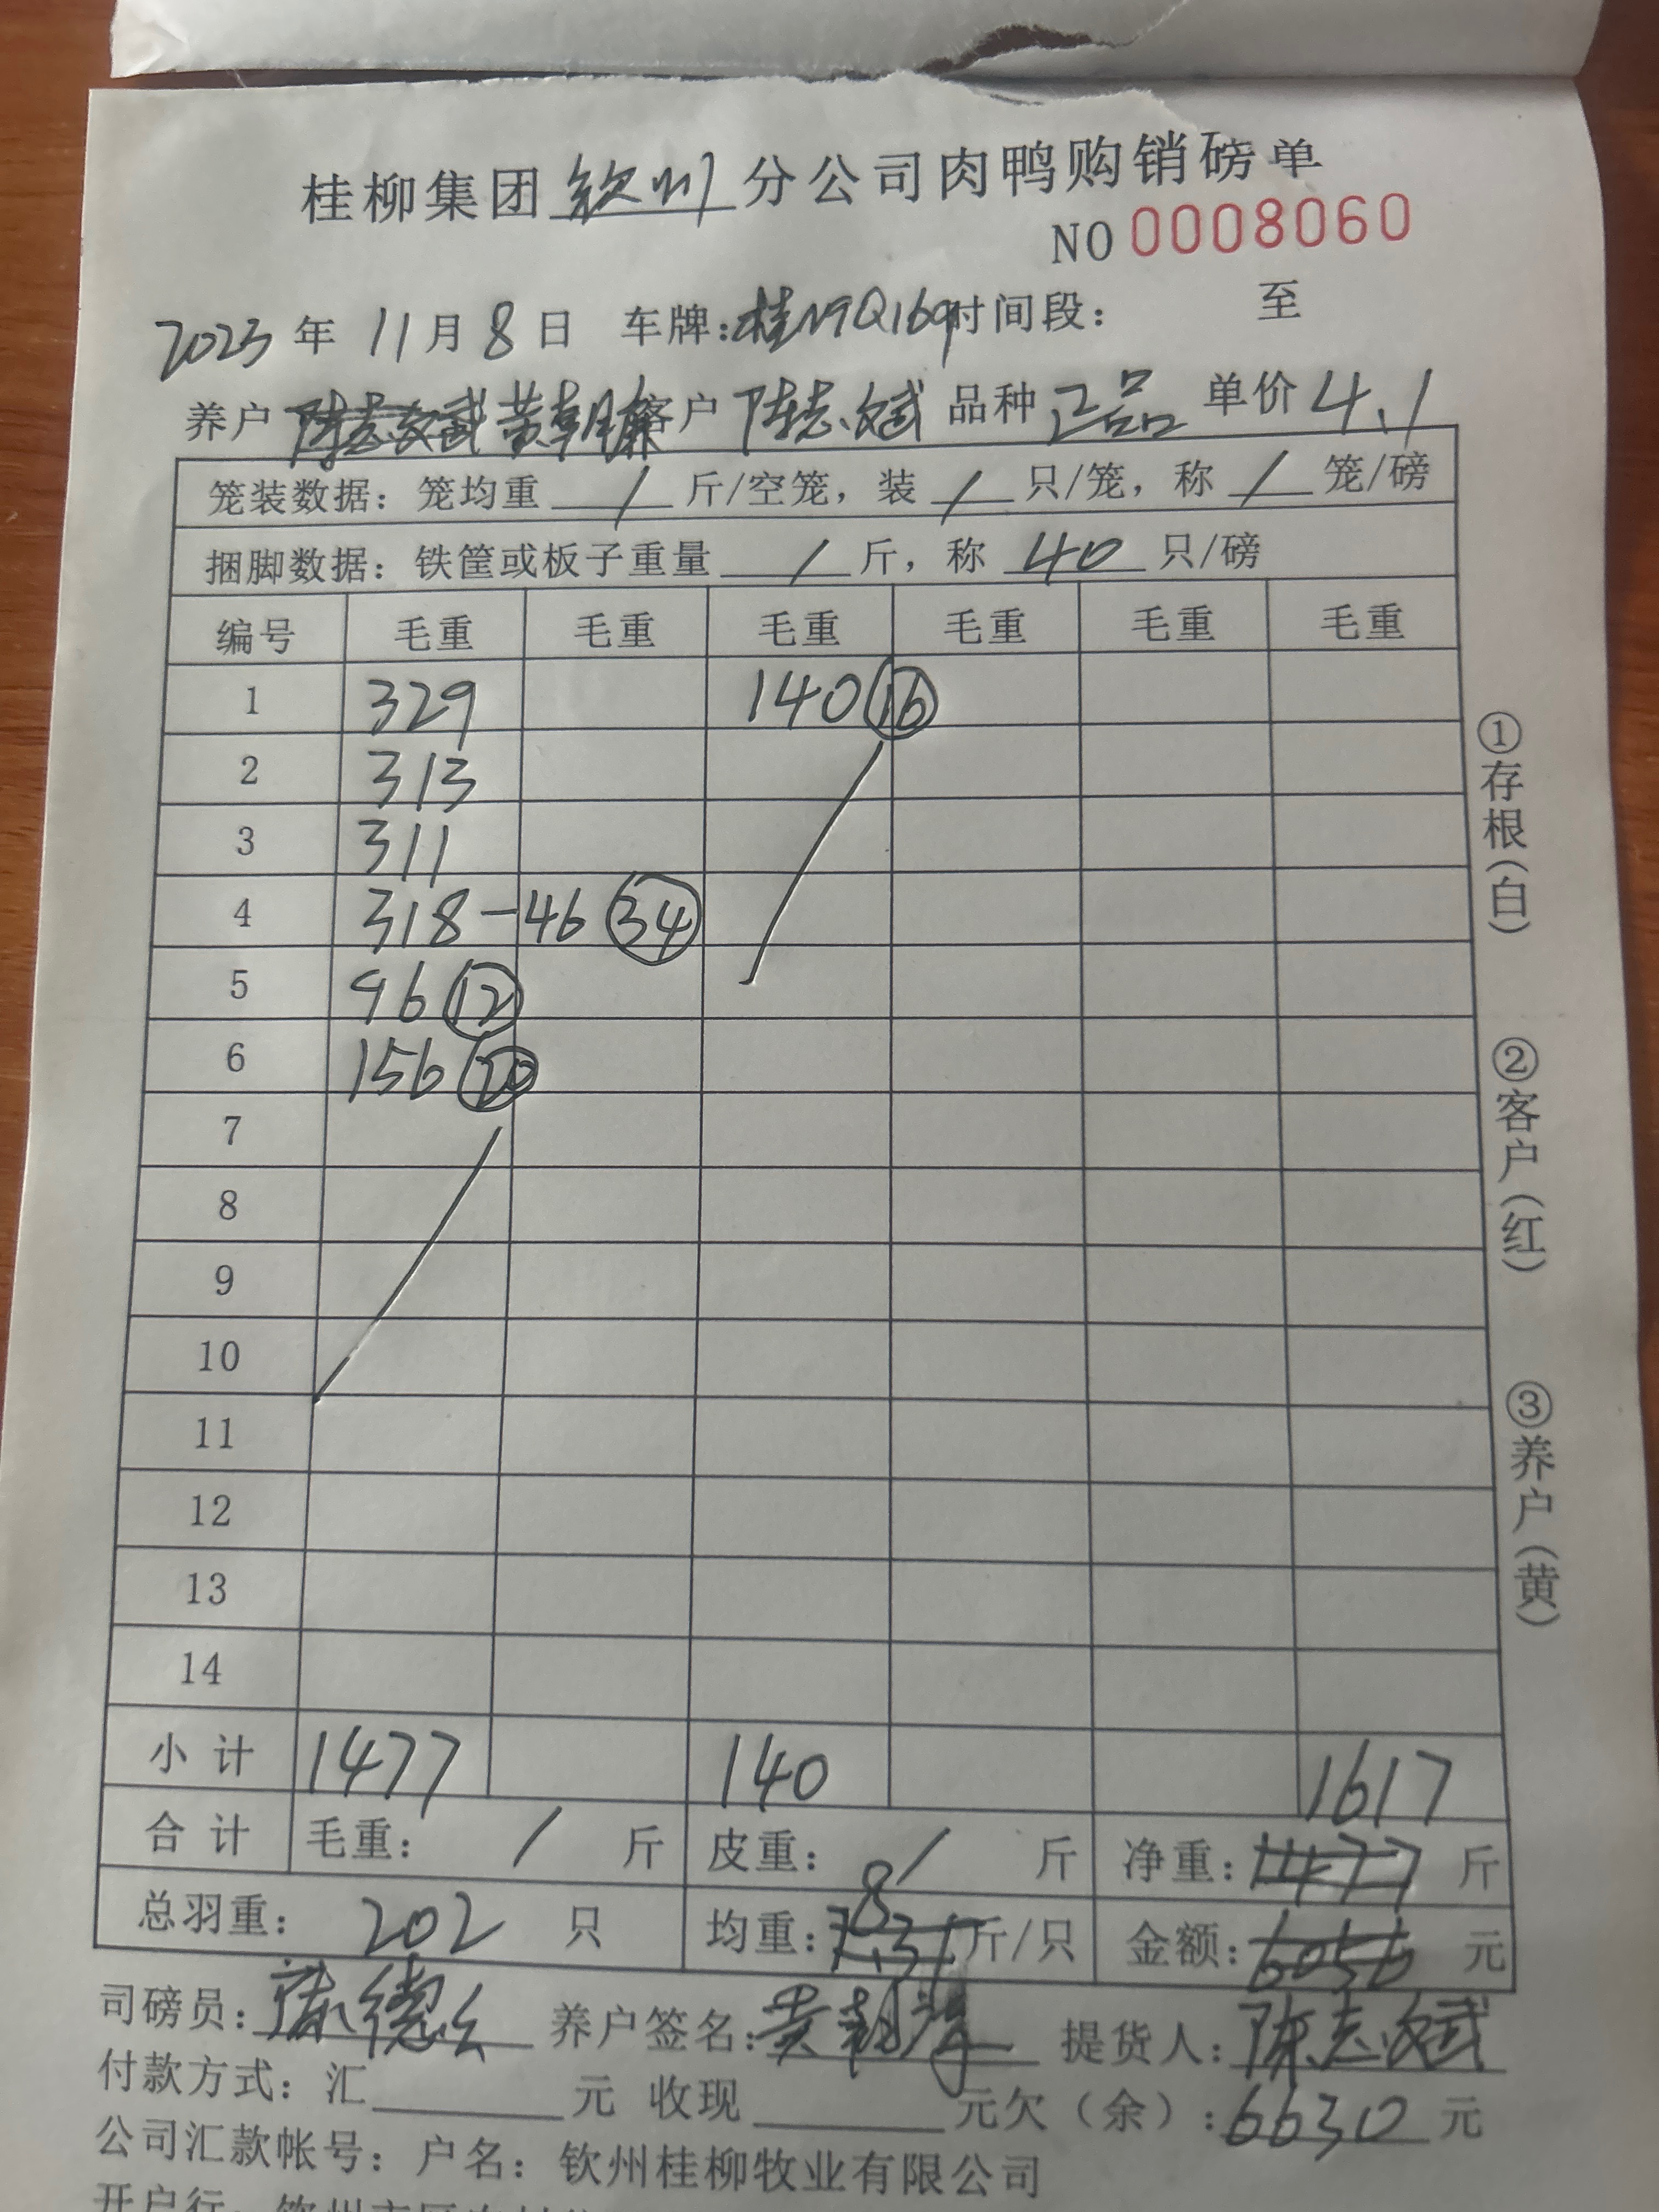 桂柳集团钦州分公司肉鸭购销磅单
NO 0008060
2023年11月8日 车牌:桂N9Q169时间段: 至
养户 黄朝 客户 陈志斌 品种 正品 单价 4.1
笼装数据：笼均重 / 斤/空笼，装 / 只/笼，称 / 笼/磅
捆脚数据：铁筐或板子重量 / 斤，称 40 只/磅
编号 毛重 毛重 毛重 毛重 毛重 毛重
1 329 140 16
2 313
3 311
4 318-46 34
5 96 12
6 156 20
7
8
9
10
11
12
13
14
小计 1477 140 1617
合计 毛重: / 斤 皮重: / 斤 净重: 1477 斤
总羽重: 202 只 均重: 8 斤/只 金额: 6056 元
司磅员: 德 养户签名: 黄朝 提货人: 陈志斌
付款方式: 汇 元 收现 元欠(余): 6630元
公司汇款帐号: 户名: 钦州桂柳牧业有限公司
开户行:
①存根(白)
②客户(红)
③养户(黄)